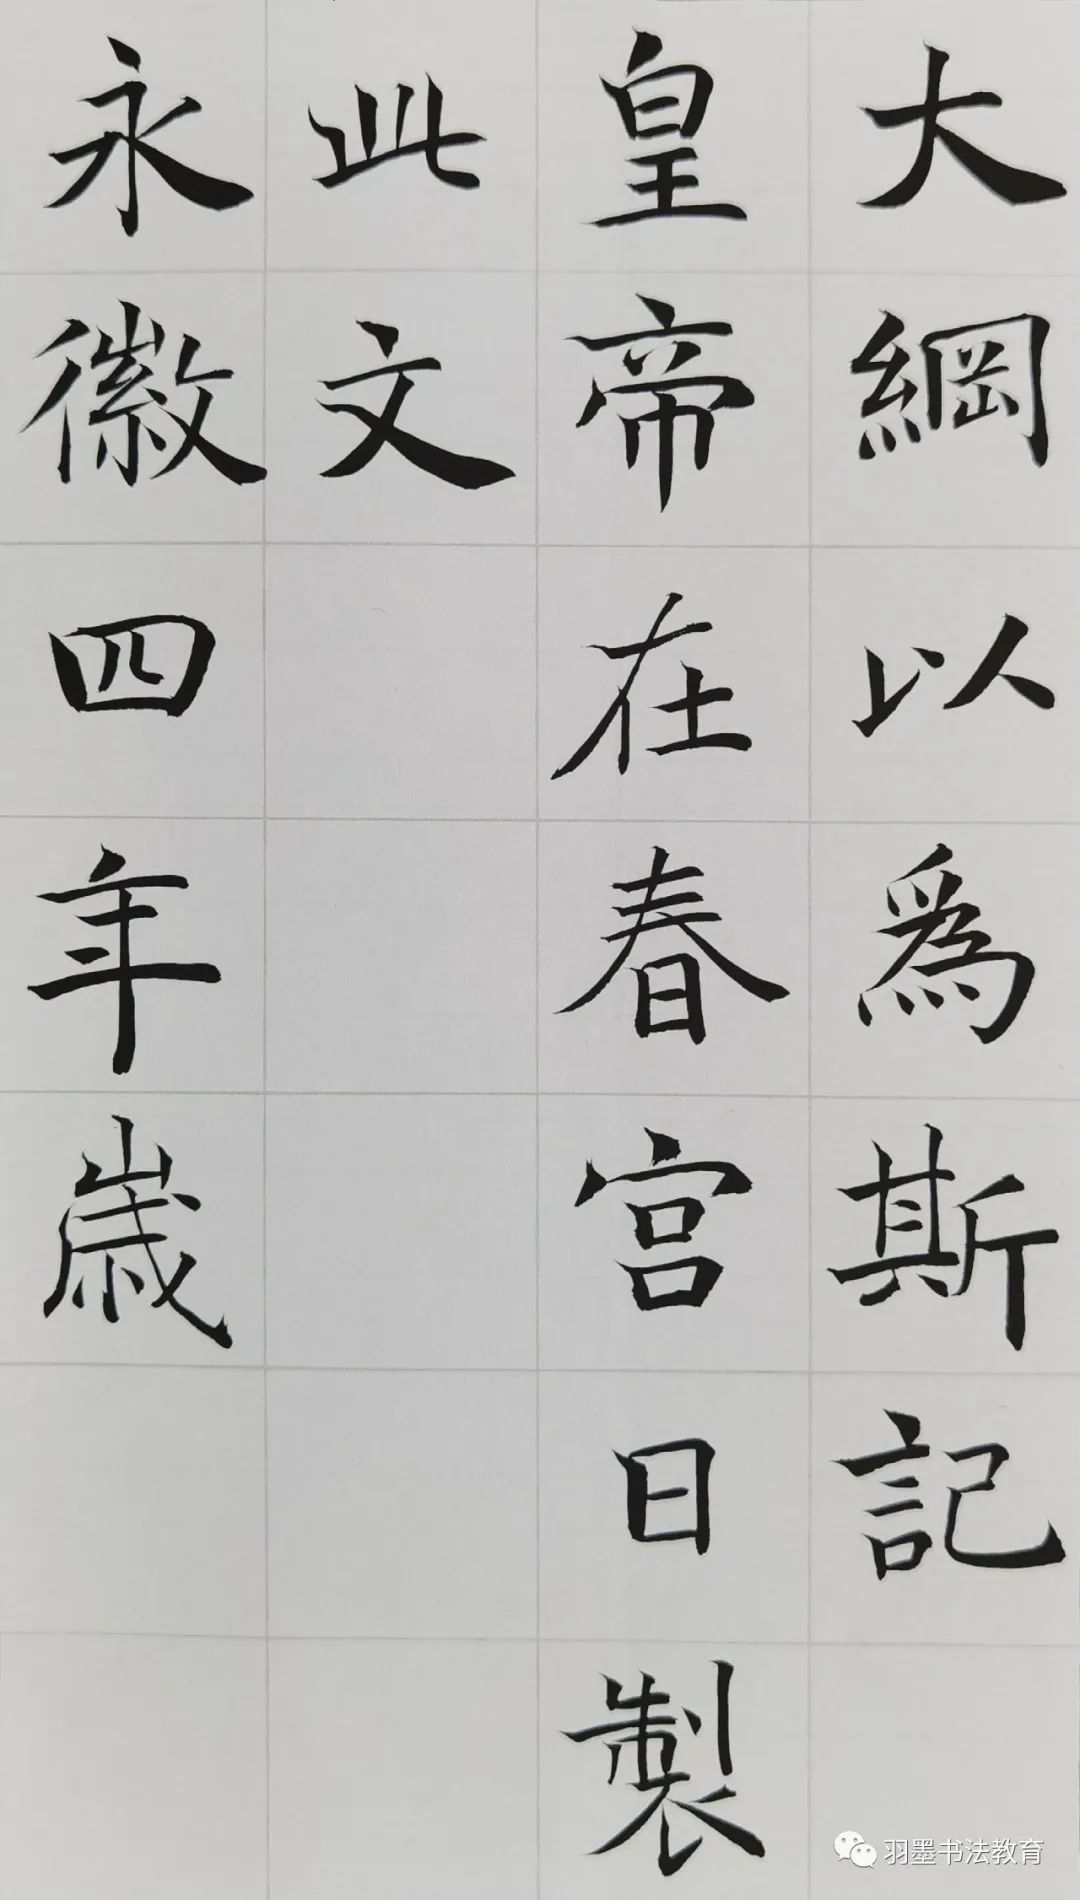 大綱以爲斯記
皇帝在春宮日製
此文
永徽四年歲
羽墨书法教育